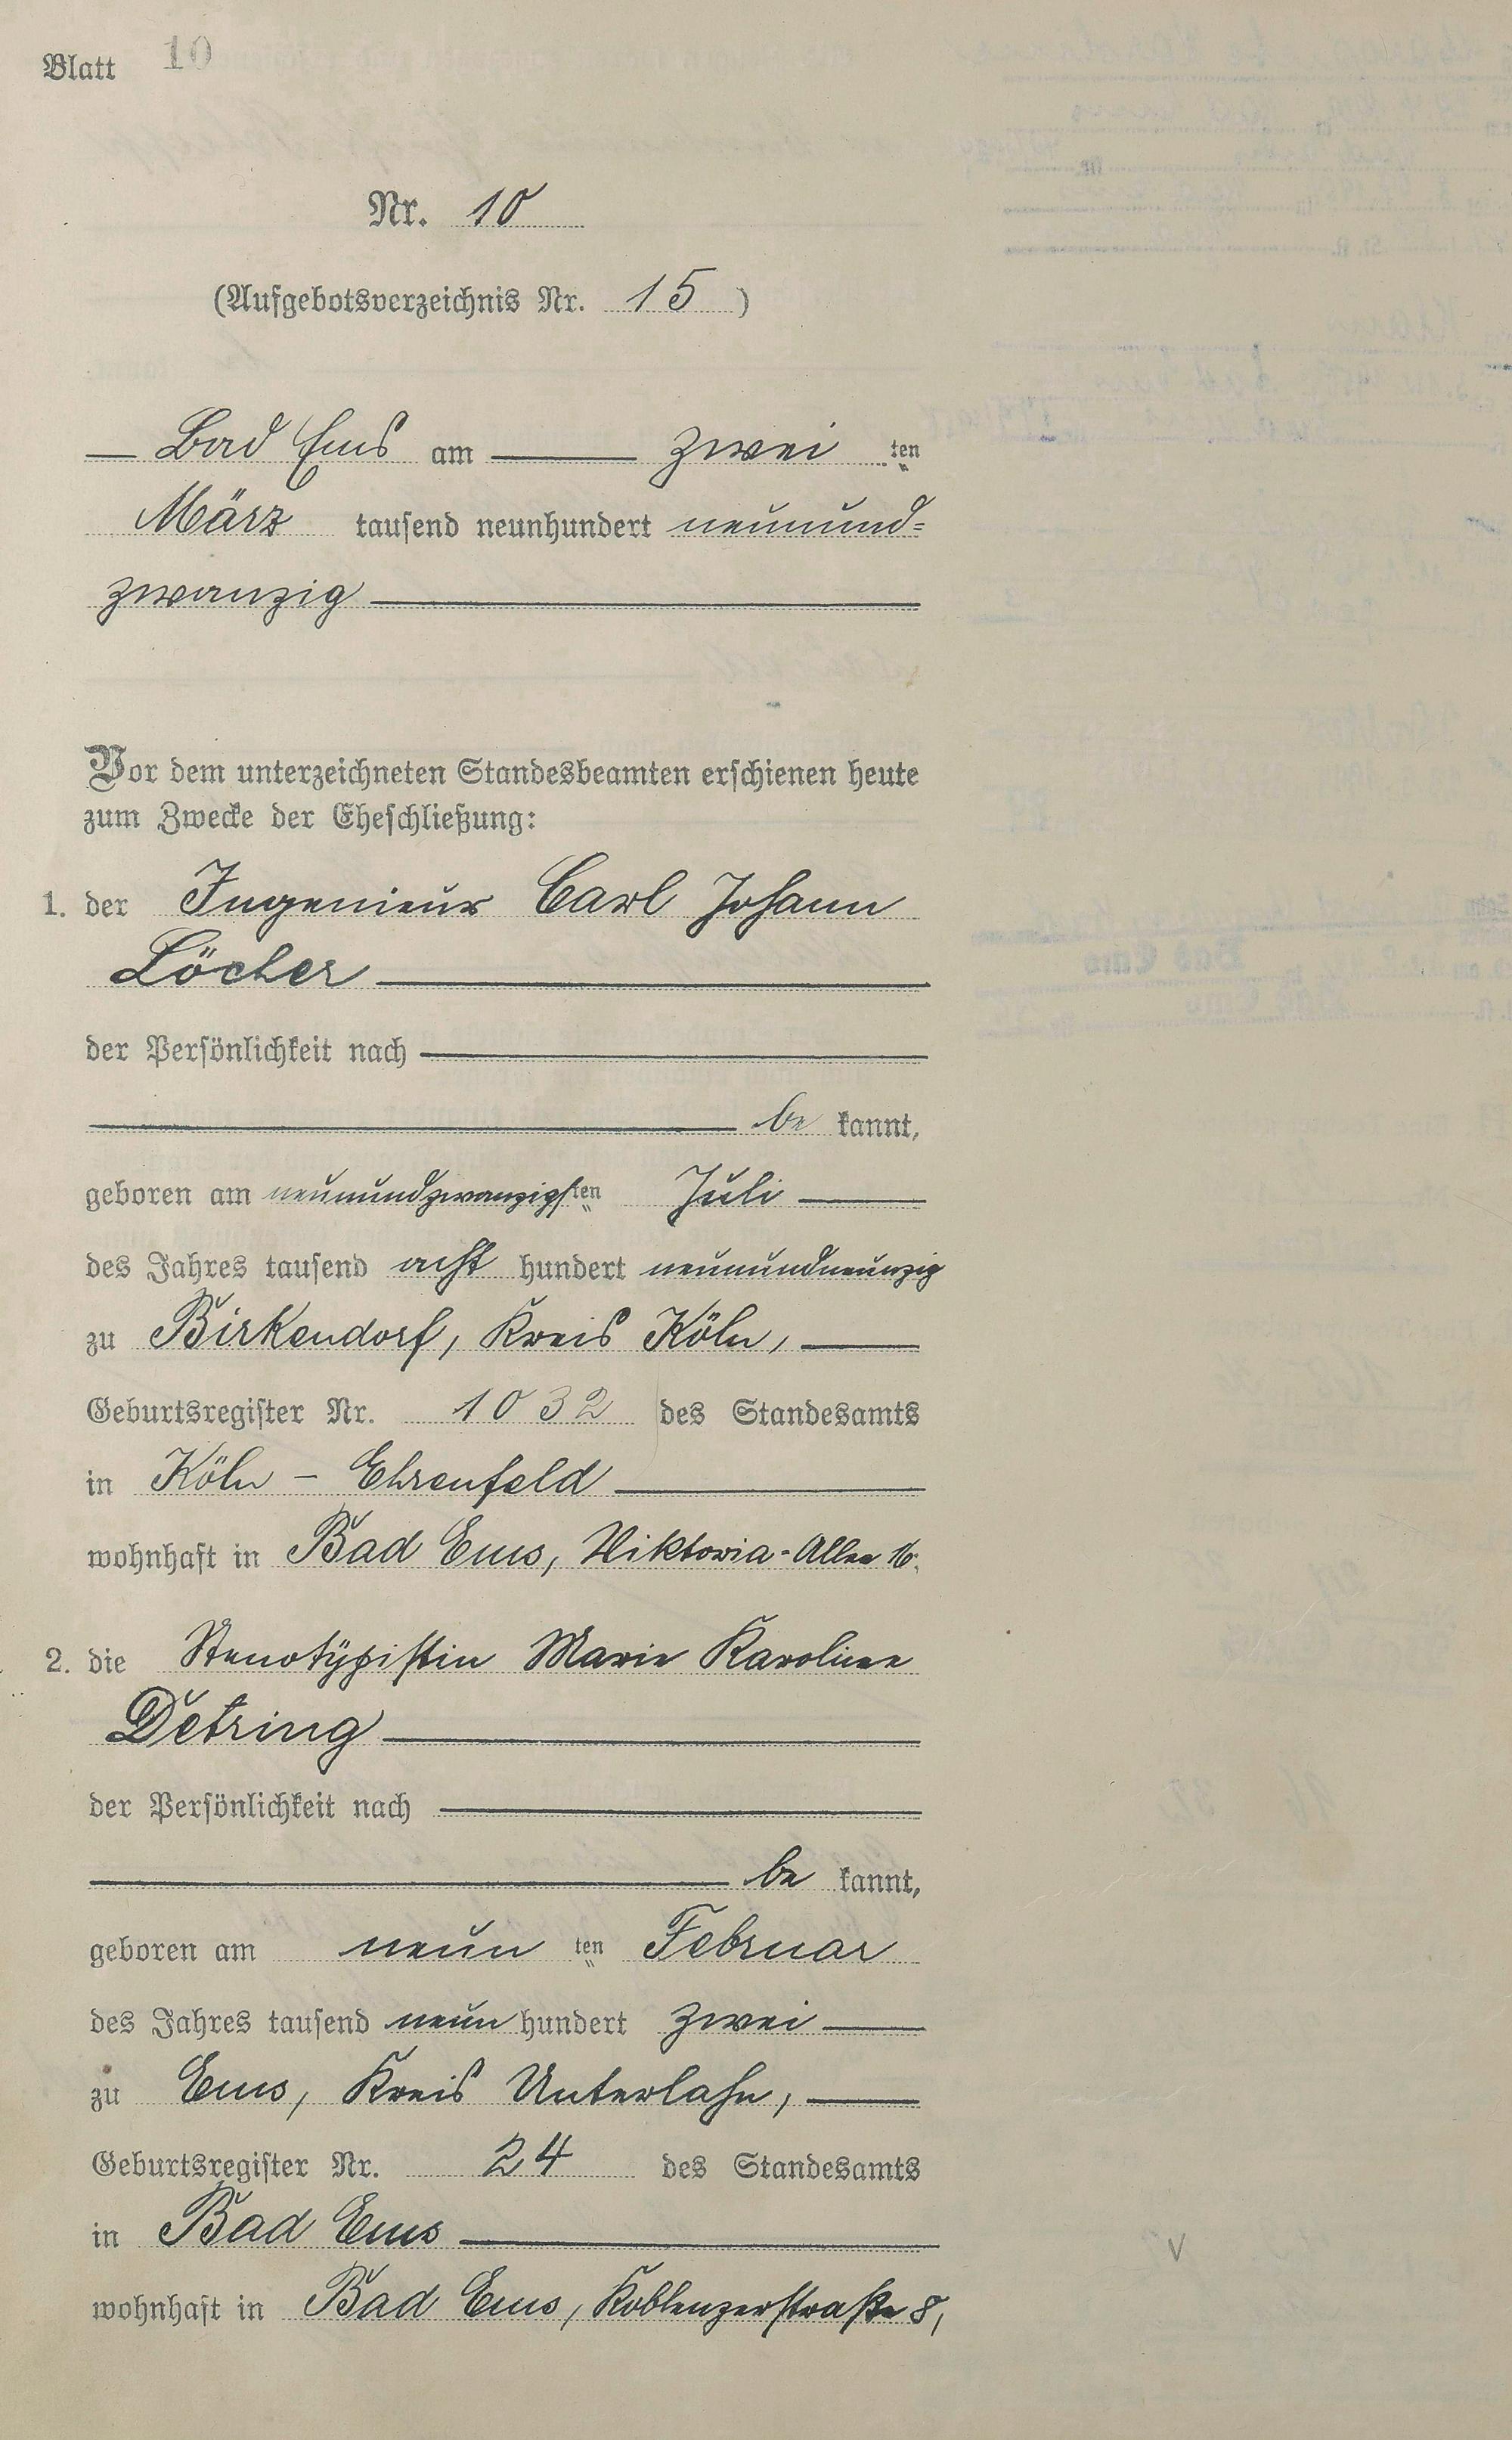 Blatt 10
Nr. 10
(Aufgebotsverzeichnis Nr. 15)
Bad Ems am zwei ten
März tausend neunhundert neunund=
zwanzig
Vor dem unterzeichneten Standesbeamten erschienen heute
zum Zwecke der Eheschließung:
1. der Ingenieur Carl Johann
Löcher
der Persönlichkeit nach
be kannt,
geboren am neunundzwanzigsten Juli
des Jahres tausend acht hundert neunundneunzig
zu Birkendorf, Kreis Köln,
Geburtsregister Nr. 1032 des Standesamts
in Köln - Ehrenfeld
wohnhaft in Bad Ems, Viktoria-Allee 16.
2. die Stenotypistin Marie Karoline
Detring
der Persönlichkeit nach
be kannt,
geboren am neun ten Februar
des Jahres tausend neun hundert zwei
zu Ems, Kreis Unterlahn,
Geburtsregister Nr. 24 des Standesamts
in Bad Ems
wohnhaft in Bad Ems, Koblenzerstraße 8,